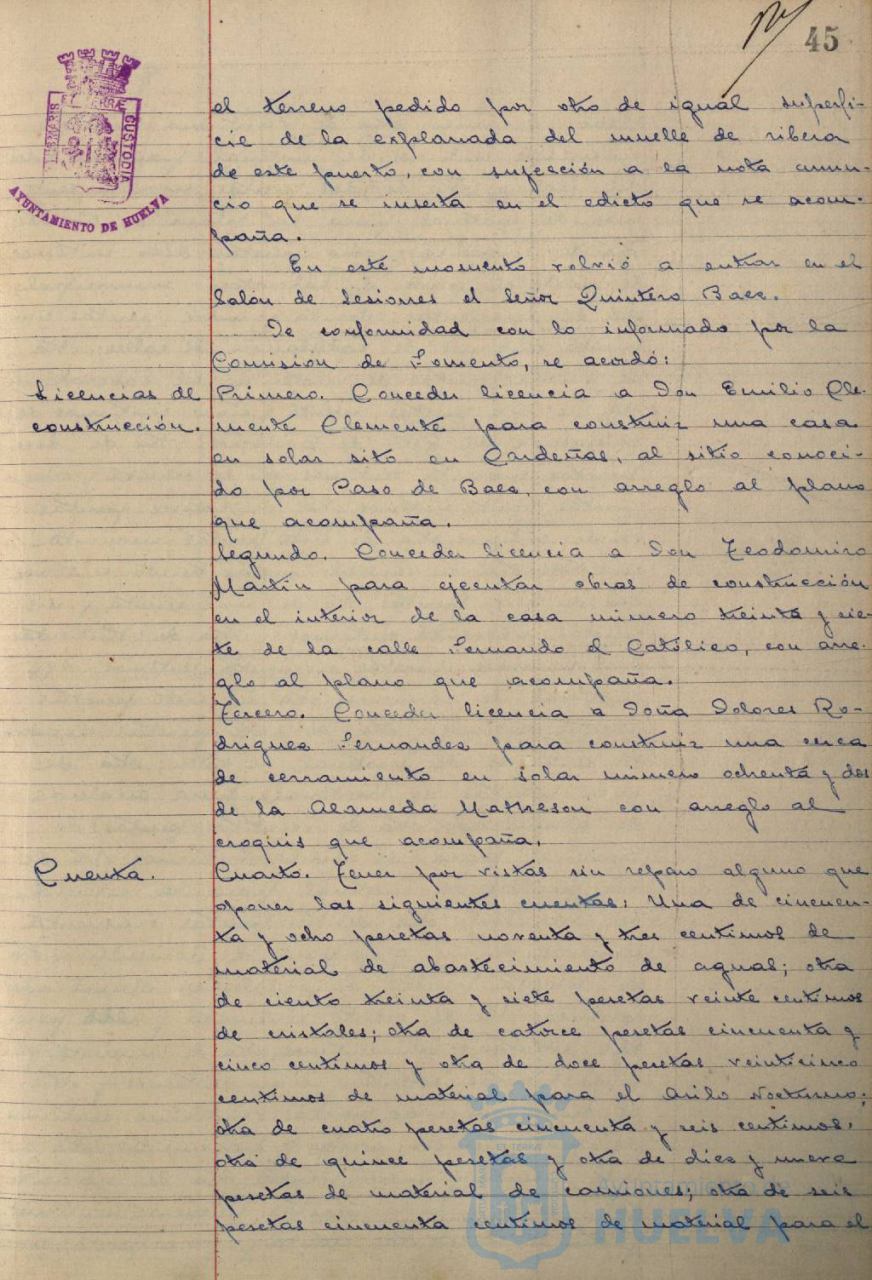 45
PORTUS MARIS ET TERRAE CUSTODIA
AYUNTAMIENTO DE HUELVA
el terreno pedido por otro de igual superfi-
cie de la explanada del muelle de ribera
de este puerto, con sujección a la nota anun-
cio que se inserta en el edicto que se acom-
paña.
En este momento volvió a entrar en el
Salón de Sesiones el Señor Quintero Baez.
De conformidad con lo informado por la
Comisión de Fomento, se acordó:
Licencias de
construcción.
Primero. Conceder licencia a Don Emilio Cle-
mente Clemente para construir una casa
en solar sito en Cardeñas, al sitio conoci-
do por Paso de Baez, con arreglo al plano
que acompaña.
Segundo. Conceder licencia a Don Teodomiro
Martín para ejecutar obras de construcción
en el interior de la casa número treinta y sie-
te de la calle Fernando el Católico, con arre-
glo al plano que acompaña.
Tercero. Conceder licencia a Doña Dolores Ro-
driguez Fernandez para construir una cerca
de cerramiento en solar número ochenta y dos
de la Alameda Matheson con arreglo al
croquis que acompaña.
Cuenta.
Cuarto. Tener por vistas sin reparo alguno que
oponer las siguientes cuentas: Una de cincuen-
ta y ocho pesetas noventa y tres centimos de
material de abastecimiento de aguas; otra
de ciento treinta y siete pesetas veinte centimos
de cristales; otra de catorce pesetas cincuenta y
cinco centimos y otra de doce pesetas veinticinco
centimos de material para el Asilo Nocturno;
otra de cuatro pesetas cincuenta y seis centimos,
otra de quince pesetas y otra de diez y nueve
pesetas de material de camiones; otra de seis
pesetas cincuenta centimos de material para el
Ayuntamiento de
HUELVA